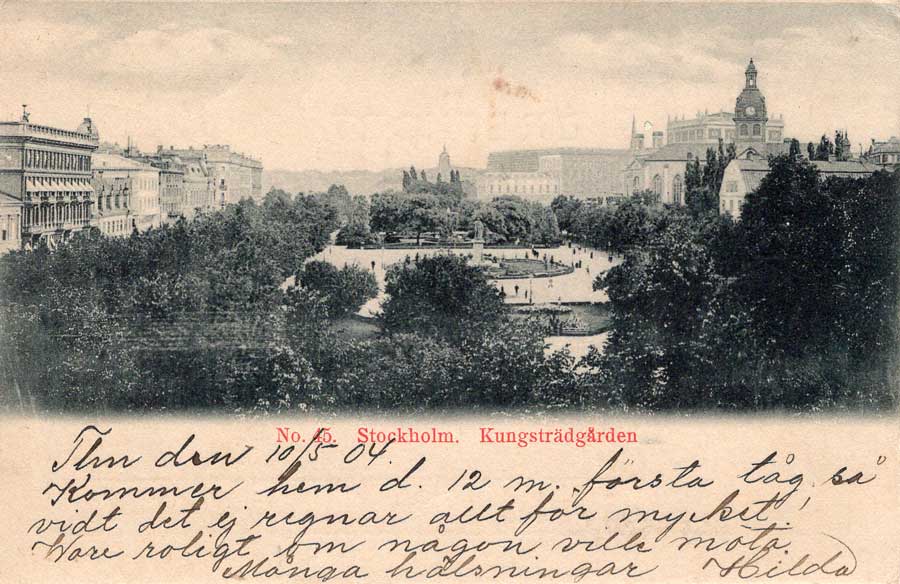 No. 45. Stockholm. Kungsträdgården
Sthm den 10/5 04.
Kommer hem d. 12 m. första tåg, så
vidt det ej regnar allt för mycket,
Vore roligt om någon ville möta.
Många hälsningar Hilda